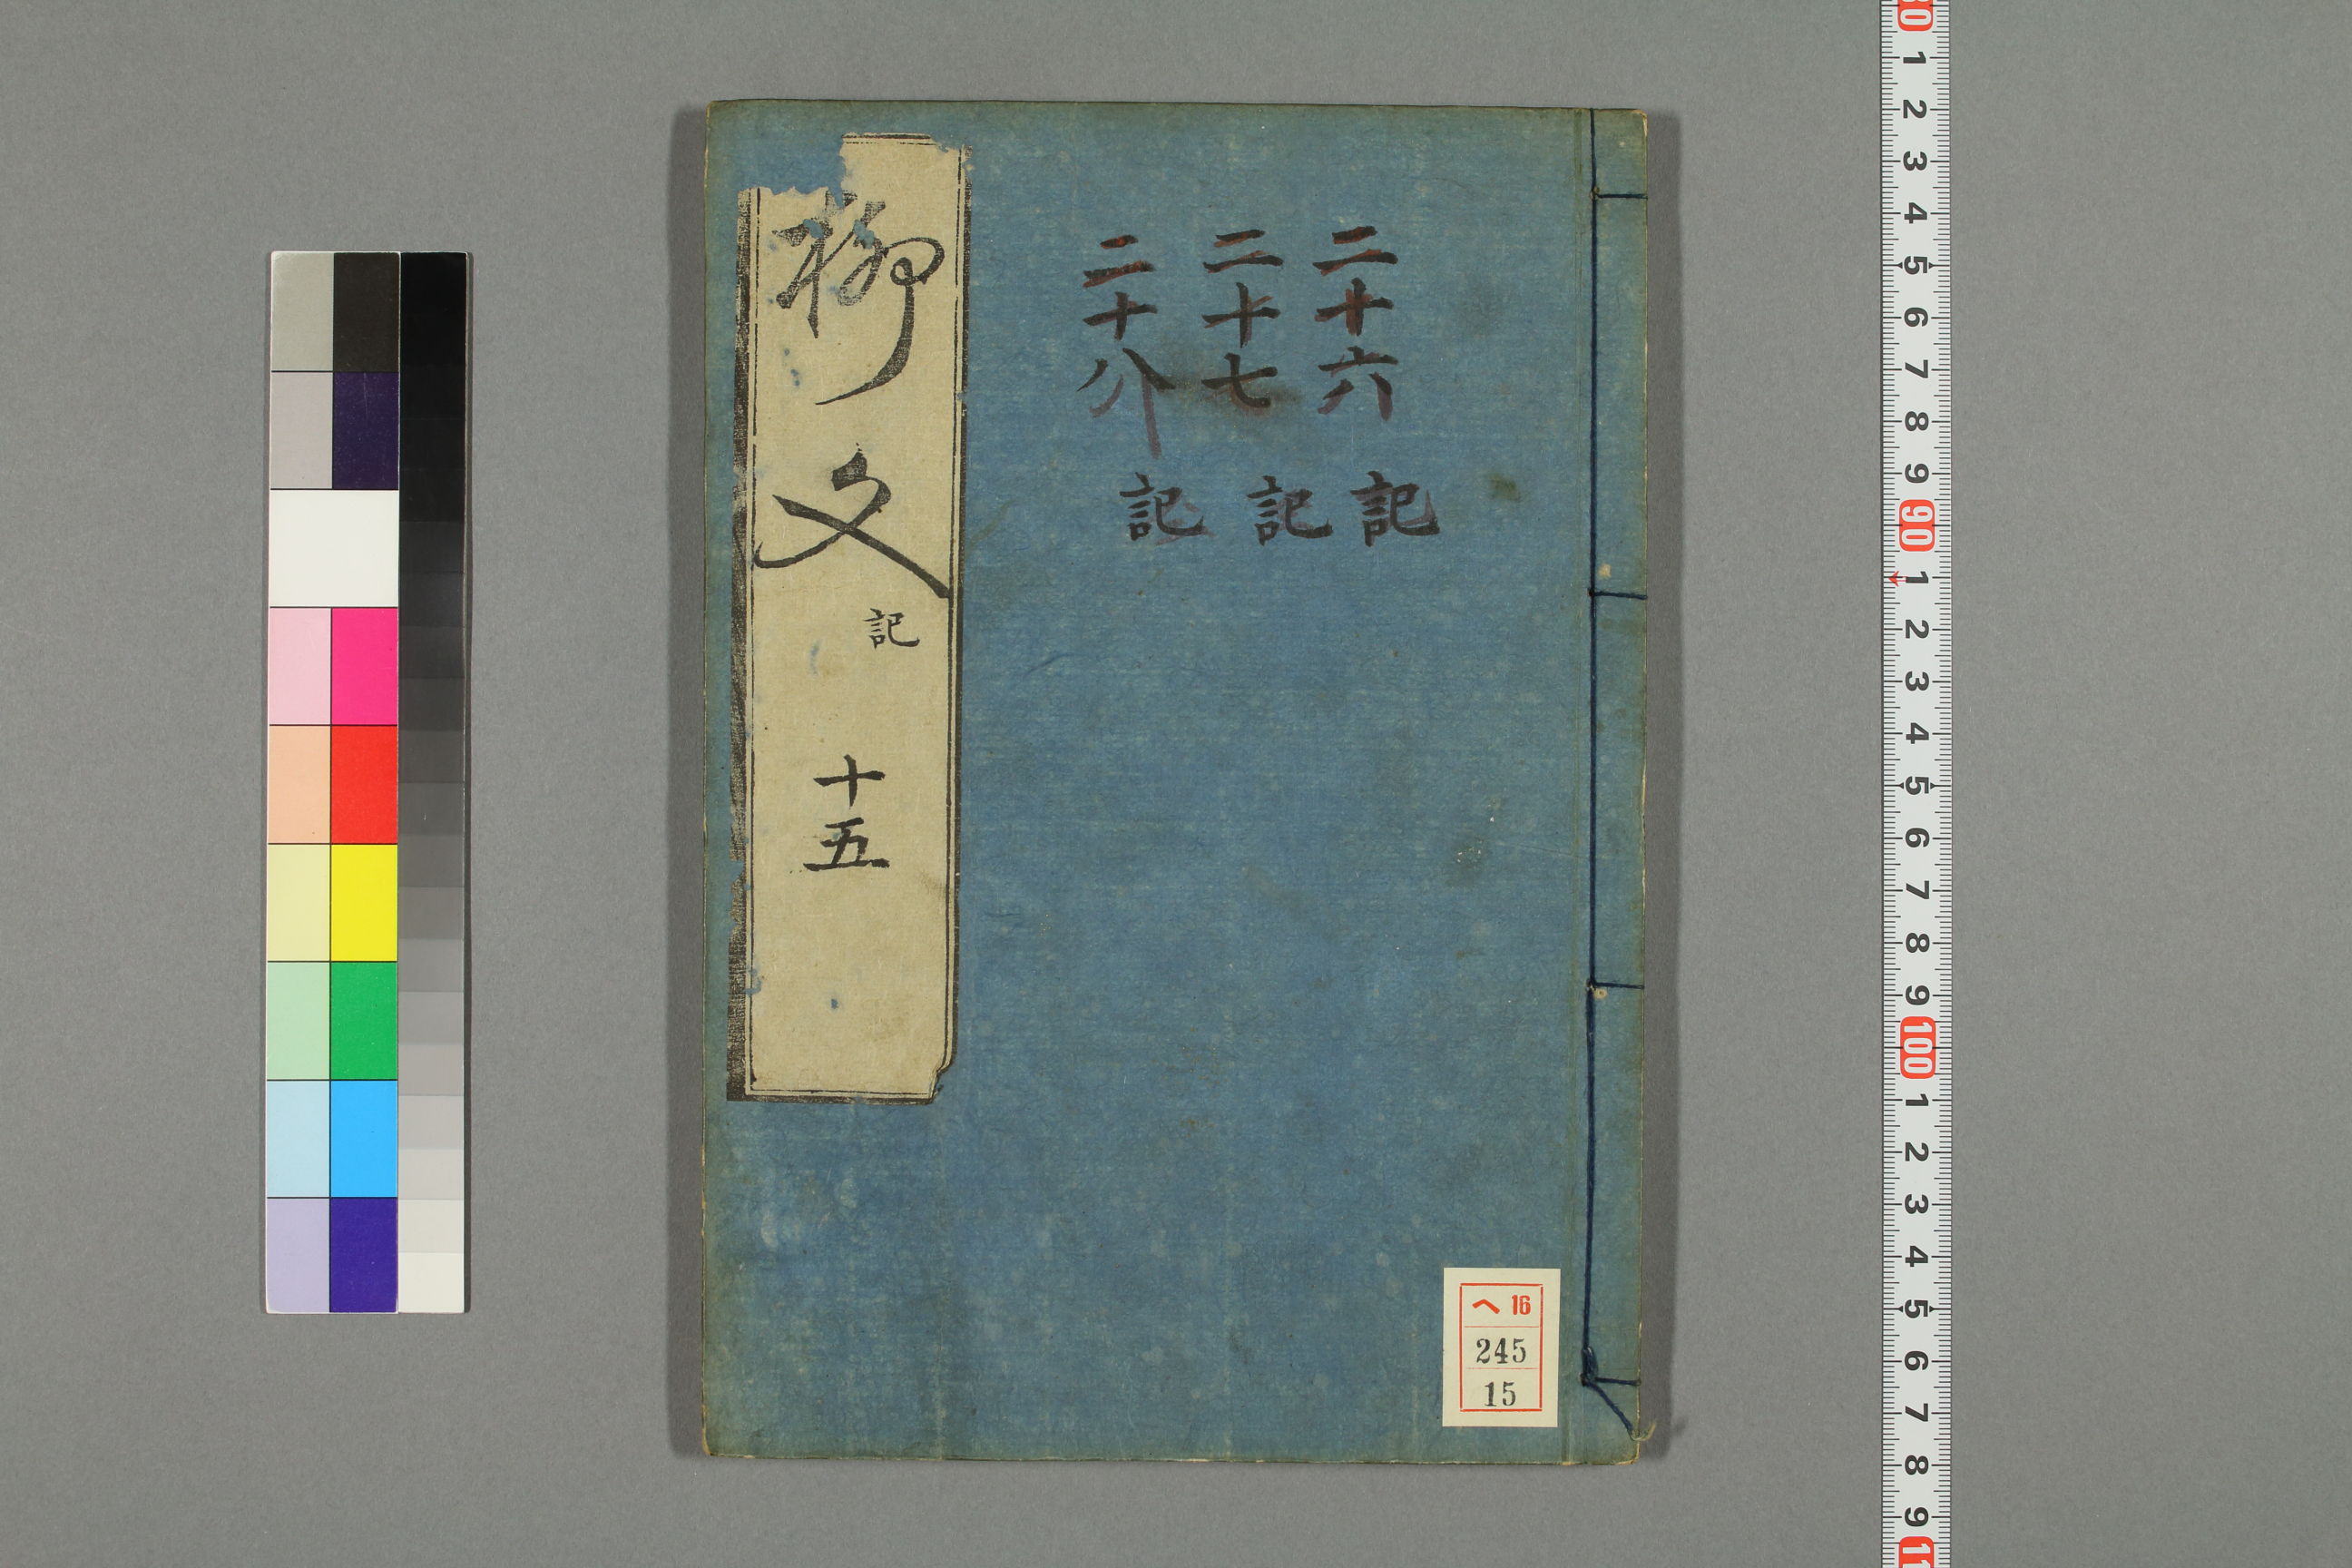 二十六 記
二十七 記
二十八 記
柳文 記 十五
ヘ 16
245
15
30 1 2 3 4 5 6 7 8 9 90 1 2 3 4 5 6 7 8 9 100 1 2 3 4 5 6 7 8 9